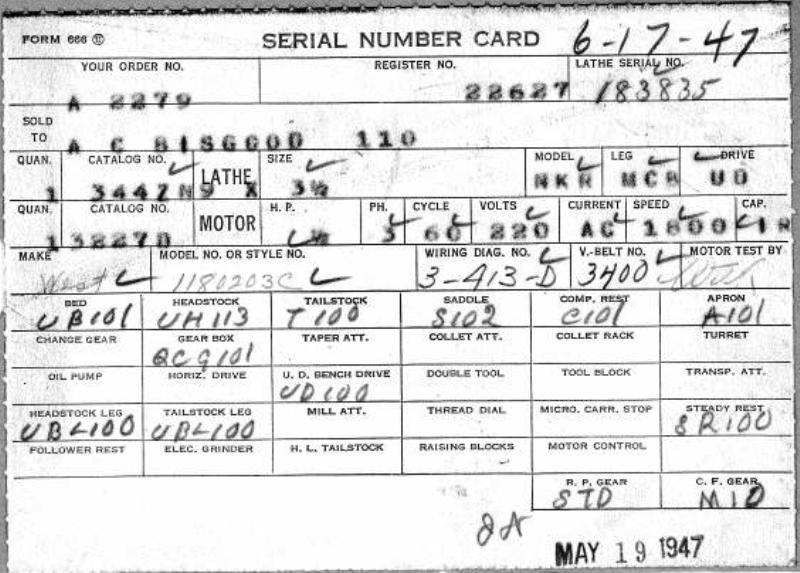 FORM 666 SERIAL NUMBER CARD 6-17-47
YOUR ORDER NO. REGISTER NO. LATHE SERIAL NO.
A 2279 22627 183835
SOLD
TO A C BISGGOD 110
QUAN. CATALOG NO. LATHE SIZE MODEL LEG DRIVE
1 3447N9 X 3½ NKR MCB UD
QUAN. CATALOG NO. MOTOR H.P. PH. CYCLE VOLTS CURRENT SPEED CAP.
1 3227D ½ 3 60 220 AC 1800
MAKE MODEL NO. OR STYLE NO. WIRING DIAG. NO. V.-BELT NO. MOTOR TEST BY
West 1180203C 3-413-D 3400
BED HEADSTOCK TAILSTOCK SADDLE COMP. REST APRON
UB101 UH113 T100 S102 C101 A101
CHANGE GEAR GEAR BOX TAPER ATT. COLLET ATT. COLLET RACK TURRET
QCG101
OIL PUMP HORIZ. DRIVE U. D. BENCH DRIVE DOUBLE TOOL TOOL BLOCK TRANSP. ATT.
UD100
HEADSTOCK LEG TAILSTOCK LEG MILL ATT. THREAD DIAL MICRO. CARR. STOP STEADY REST
UBL100 UBL100 SR100
FOLLOWER REST ELEC. GRINDER H. L. TAILSTOCK RAISING BLOCKS MOTOR CONTROL
R. P. GEAR C. F. GEAR
STD MID
MAY 19 1947